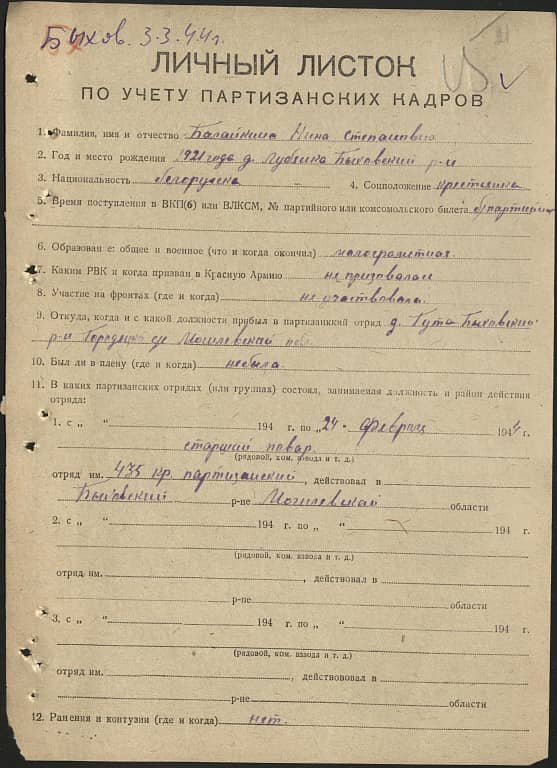 Быхов. 3.3.44г.
ЛИЧНЫЙ ЛИСТОК
ПО УЧЕТУ ПАРТИЗАНСКИХ КАДРОВ
1. Фамилия, имя и отчество Балайкина Нина Степановна
2. Год и место рождения 1921 года д. Быховский р-н
3. Национальность белоруска 4. Соцположение крестьянка
5. Время поступления в ВКП(б) или ВЛКСМ, № партийного или комсомольского билета б/партийная
6. Образование: общее и военное (что и когда окончил) малограмотная.
7. Каким РВК и когда призван в Красную Армию не призовалась
8. Участие на фронтах (где и когда) не участвовала.
9. Откуда, когда и с какой должности прибыл в партизанский отряд д. Гута Быховский
р-н Могилевской обл.
10. Был ли в плену (где и когда) небыла.
11. В каких партизанских отрядах (или группах) состоял, занимаемая должность и район действия
отряда:
1. с „ “ 194 г. по „24“ февраля 1944 г.
старший повар.
(рядовой, ком. взвода и т. д.)
отряд им. 425 кр. партизанский, действовал в
Быховский р-не Могилевской области
2. с „ “ 194 г. по „ “ 194 г.
(рядовой, ком. взвода и т. д.)
отряд им. , действовал в
р-не области
3. с „ “ 194 г. по „ “ 194 г.
(рядовой, ком. взвода и т. д.)
отряд им. , действовал в
р-не области
12. Ранения и контузии (где и когда) нет.